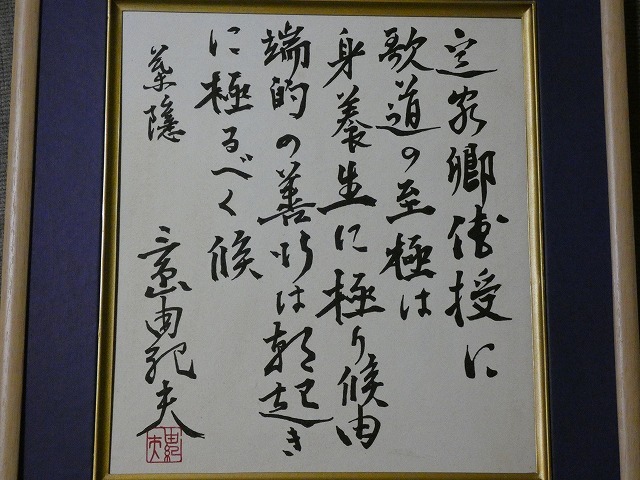 定家卿伝授に
歌道の至極は
身養生に極り候由
端的の善行は朝起き
に極るべく候
葉隠
三島由紀夫
由紀夫